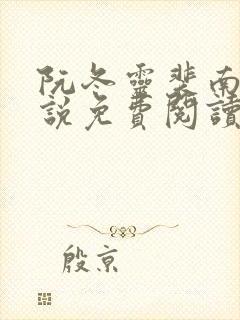 阮冬靈裴南
說免費閱讀
殷京